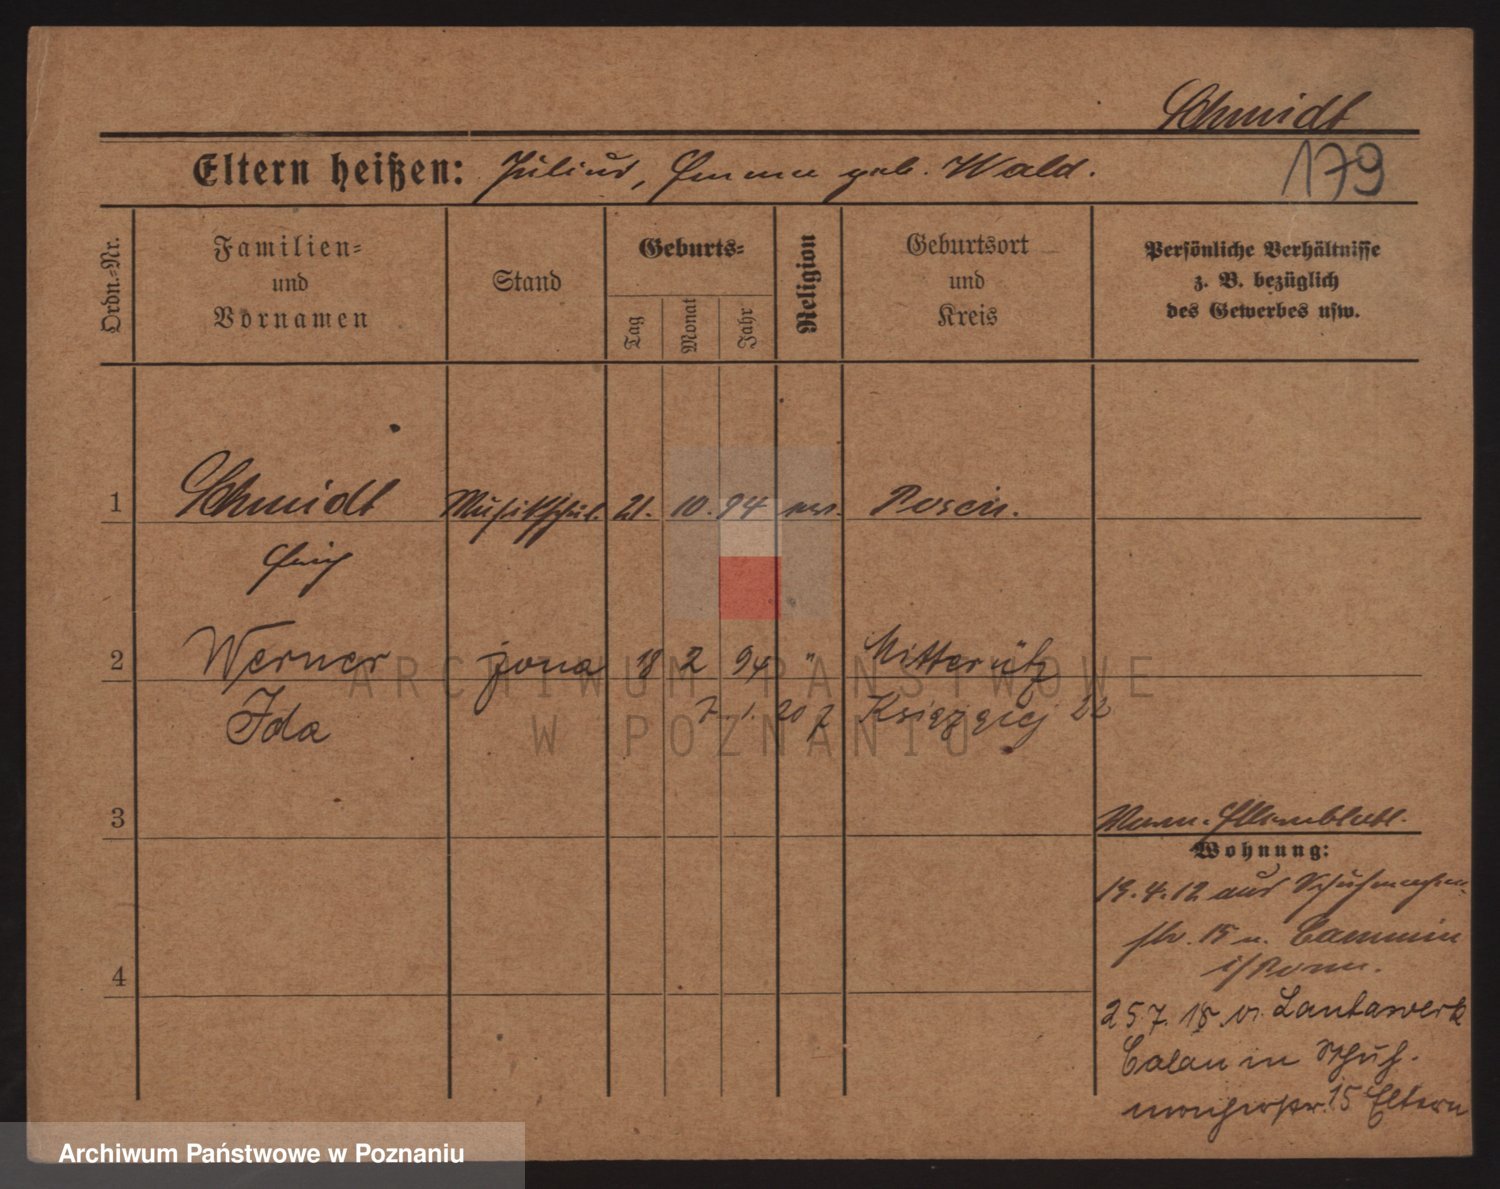 Schmidt
Eltern heißen: Julius, Emma geb. Wald.
179
Ordn.-Nr.
Familien-
und
Vornamen
Stand
Geburts-
Tag
Monat
Jahr
Religion
Geburtsort
und
Kreis
Persönliche Verhältnisse
z. B. bezüglich
des Gewerbes usw.
1 Schmidt Musikschül. 21. 10. 94 ev. Posen.
Erich
2 Werner żona 18 2 94 "
Ida 7. 1. 20 z 22
3
Mann. Stammblatt.
Wohnung:
19.4.12 aus Schuhmacher-
str. 15 n. Cammin
i/Pomm.
4
25.7. 18. v.
in Schuh-
macherstr. 15 Eltern
ARCHIWUM PAŃSTWOWE
W POZNANIU
Archiwum Państwowe w Poznaniu